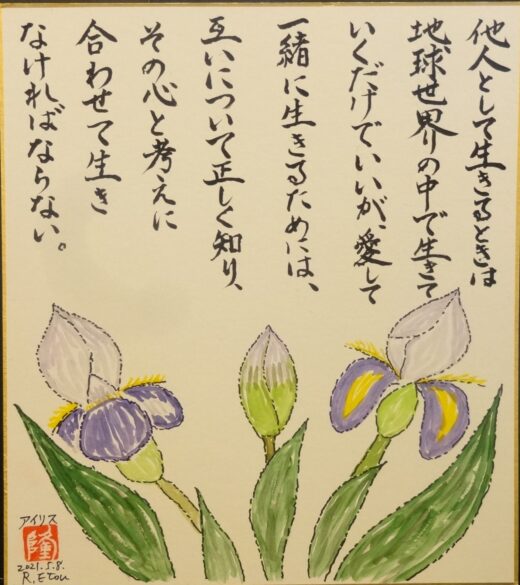 他人として生きるときは
地球世界の中で生きて
いくだけでいいが、愛して
一緒に生きるためには、
互いについて正しく知り、
その心と考えに
合わせて生き
なければならない。
アイリス
隆
2021.5.8.
R.Etou